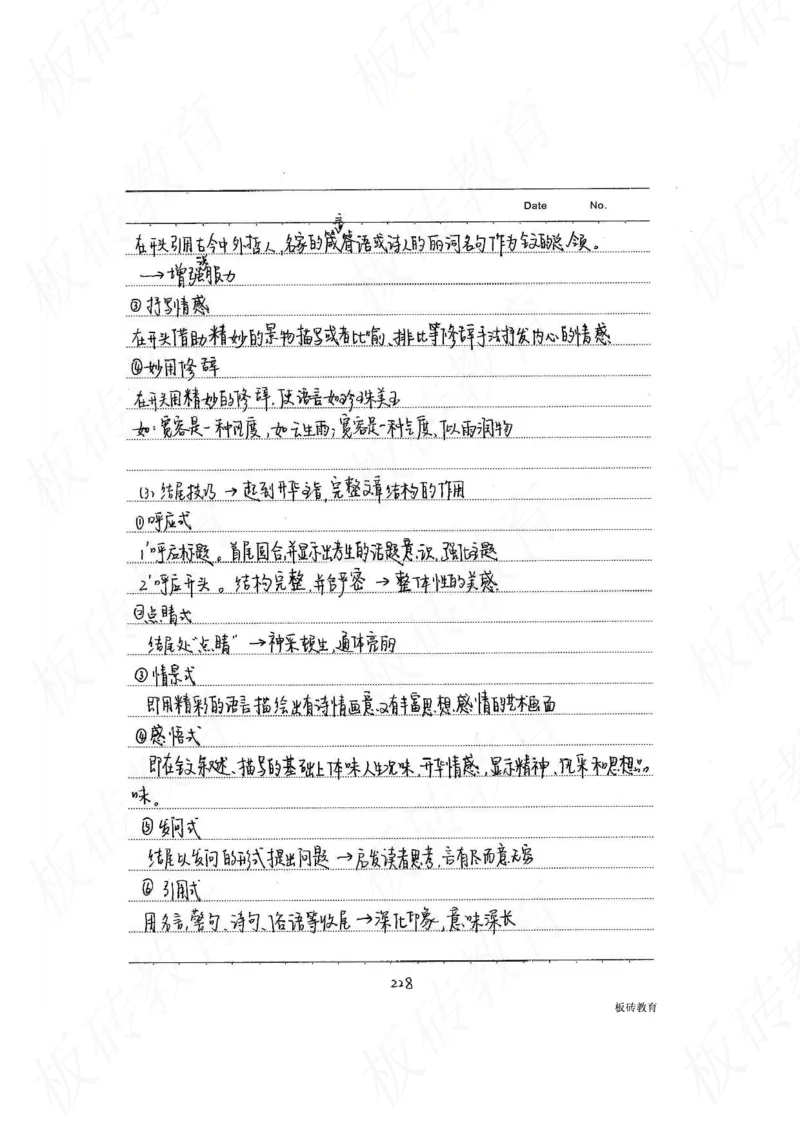 Date No.
在开头引用古今中外哲人,名家的箴言警语或诗人的丽词名句作为全文的总领。
→增强说服力
③抒写情感
在开头借助精妙的景物描写或者比喻、排比等修辞手法抒发内心的情感
④妙用修辞
在开头用精妙的修辞,使语言如吟珠美玉
如:宽容是一种风度,如云生雨;宽容是一种气度,似雨润物
(3)结尾技巧 → 起到升华主旨,完整文章结构的作用
①呼应式
1'呼应标题。首尾圆合,并显示出考生的话题意识,强化主题
2'呼应开头。结构完整,并台严密 → 整体性的美感
②点睛式
结尾处“点睛” →神采顿生,通体亮丽
③情景式
即用精彩的语言描绘出有诗情画意、又有丰富思想、感情的艺术画面
④感悟式
即在全文叙述、描写的基础上体味人生况味,升华情感,显示精神、风采和思想品
味。
⑤发问式
结尾以发问的形式提出问题 →启发读者思考,言有尽而意无穷
⑥引用式
用名言,警句、诗句、俗语等收尾 →深化印象,意味深长
228
板砖教育